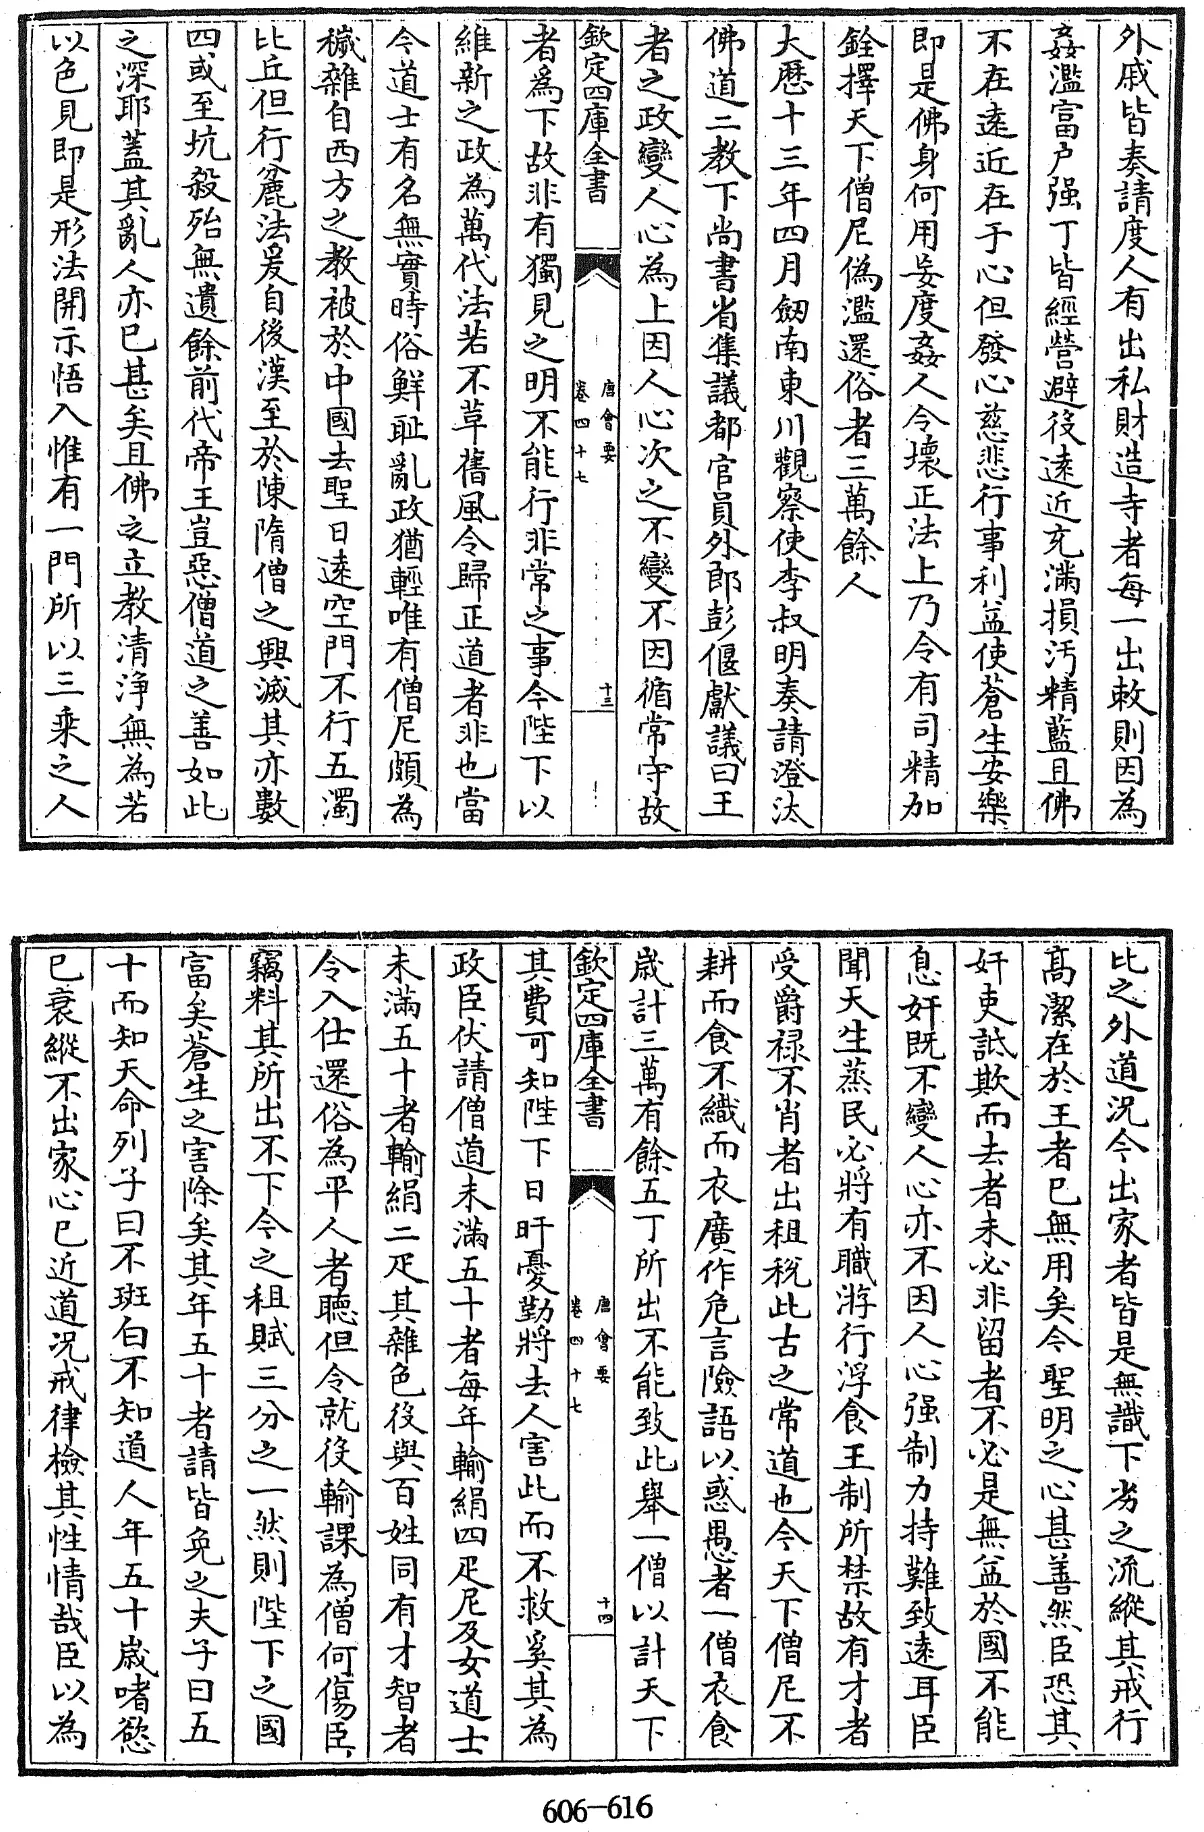 外戚皆奏請度人有出私財造寺者每一出敕則因為
姦濫富户强丁皆經營避役逺近充滿損汚精藍且佛
不在逺近在于心但發心慈悲行事利益使蒼生安樂
即是佛身何用妄度姦人令壞正法上乃令有司精加
銓擇天下僧尼偽濫還俗者三萬餘人
大厯十三年四月劒南東川觀察使李叔明奏請澄汰
佛道二教下尚書省集議都官員外郎彭偃獻議曰王
者之政變人心為上因人心次之不變不因循常守故
欽定四庫全書
唐會要
卷四十七
十三
者為下故非有獨見之明不能行非常之事今陛下以
維新之政為萬代法若不革舊風令歸正道者非也當
今道士有名無實時俗鮮耻亂政猶輕唯有僧尼頗為
穢雜自西方之教被於中國去聖日逺空門不行五濁
比丘但行麄法爰自後漢至於陳隋僧之興滅其亦數
四或至坑殺殆無遺餘前代帝王豈惡僧道之善如此
之深耶蓋其亂人亦已甚矣且佛之立教清淨無為若
以色見即是形法開示悟入惟有一門所以三乗之人
比之外道况今出家者皆是無識下劣之流縱其戒行
髙潔在於王者已無用矣今聖明之心甚善然臣恐其
奸吏詆欺而去者未必非留者不必是無益於國不能
息奸既不變人心亦不因人心强制力持難致逺耳臣
聞天生蒸民必將有職游行浮食王制所禁故有才者
受爵禄不肖者出租税此古之常道也今天下僧尼不
耕而食不織而衣廣作危言險語以惑愚者一僧衣食
嵗計三萬有餘五丁所出不能致此舉一僧以計天下
欽定四庫全書
唐會要
卷四十七
十四
其費可知陛下日旰憂勤將去人害此而不救奚其為
政臣伏請僧道未滿五十者每年輸絹四疋尼及女道士
未滿五十者輸絹二疋其雜色役與百姓同有才智者
令入仕還俗為平人者聽但令就役輸課為僧何傷臣
竊料其所出不下今之租賦三分之一然則陛下之國
富矣蒼生之害除矣其年五十者請皆免之夫子曰五
十而知天命列子曰不斑白不知道人年五十嵗嗜慾
已衰縱不出家心已近道况戒律檢其性情哉臣以為
606-616